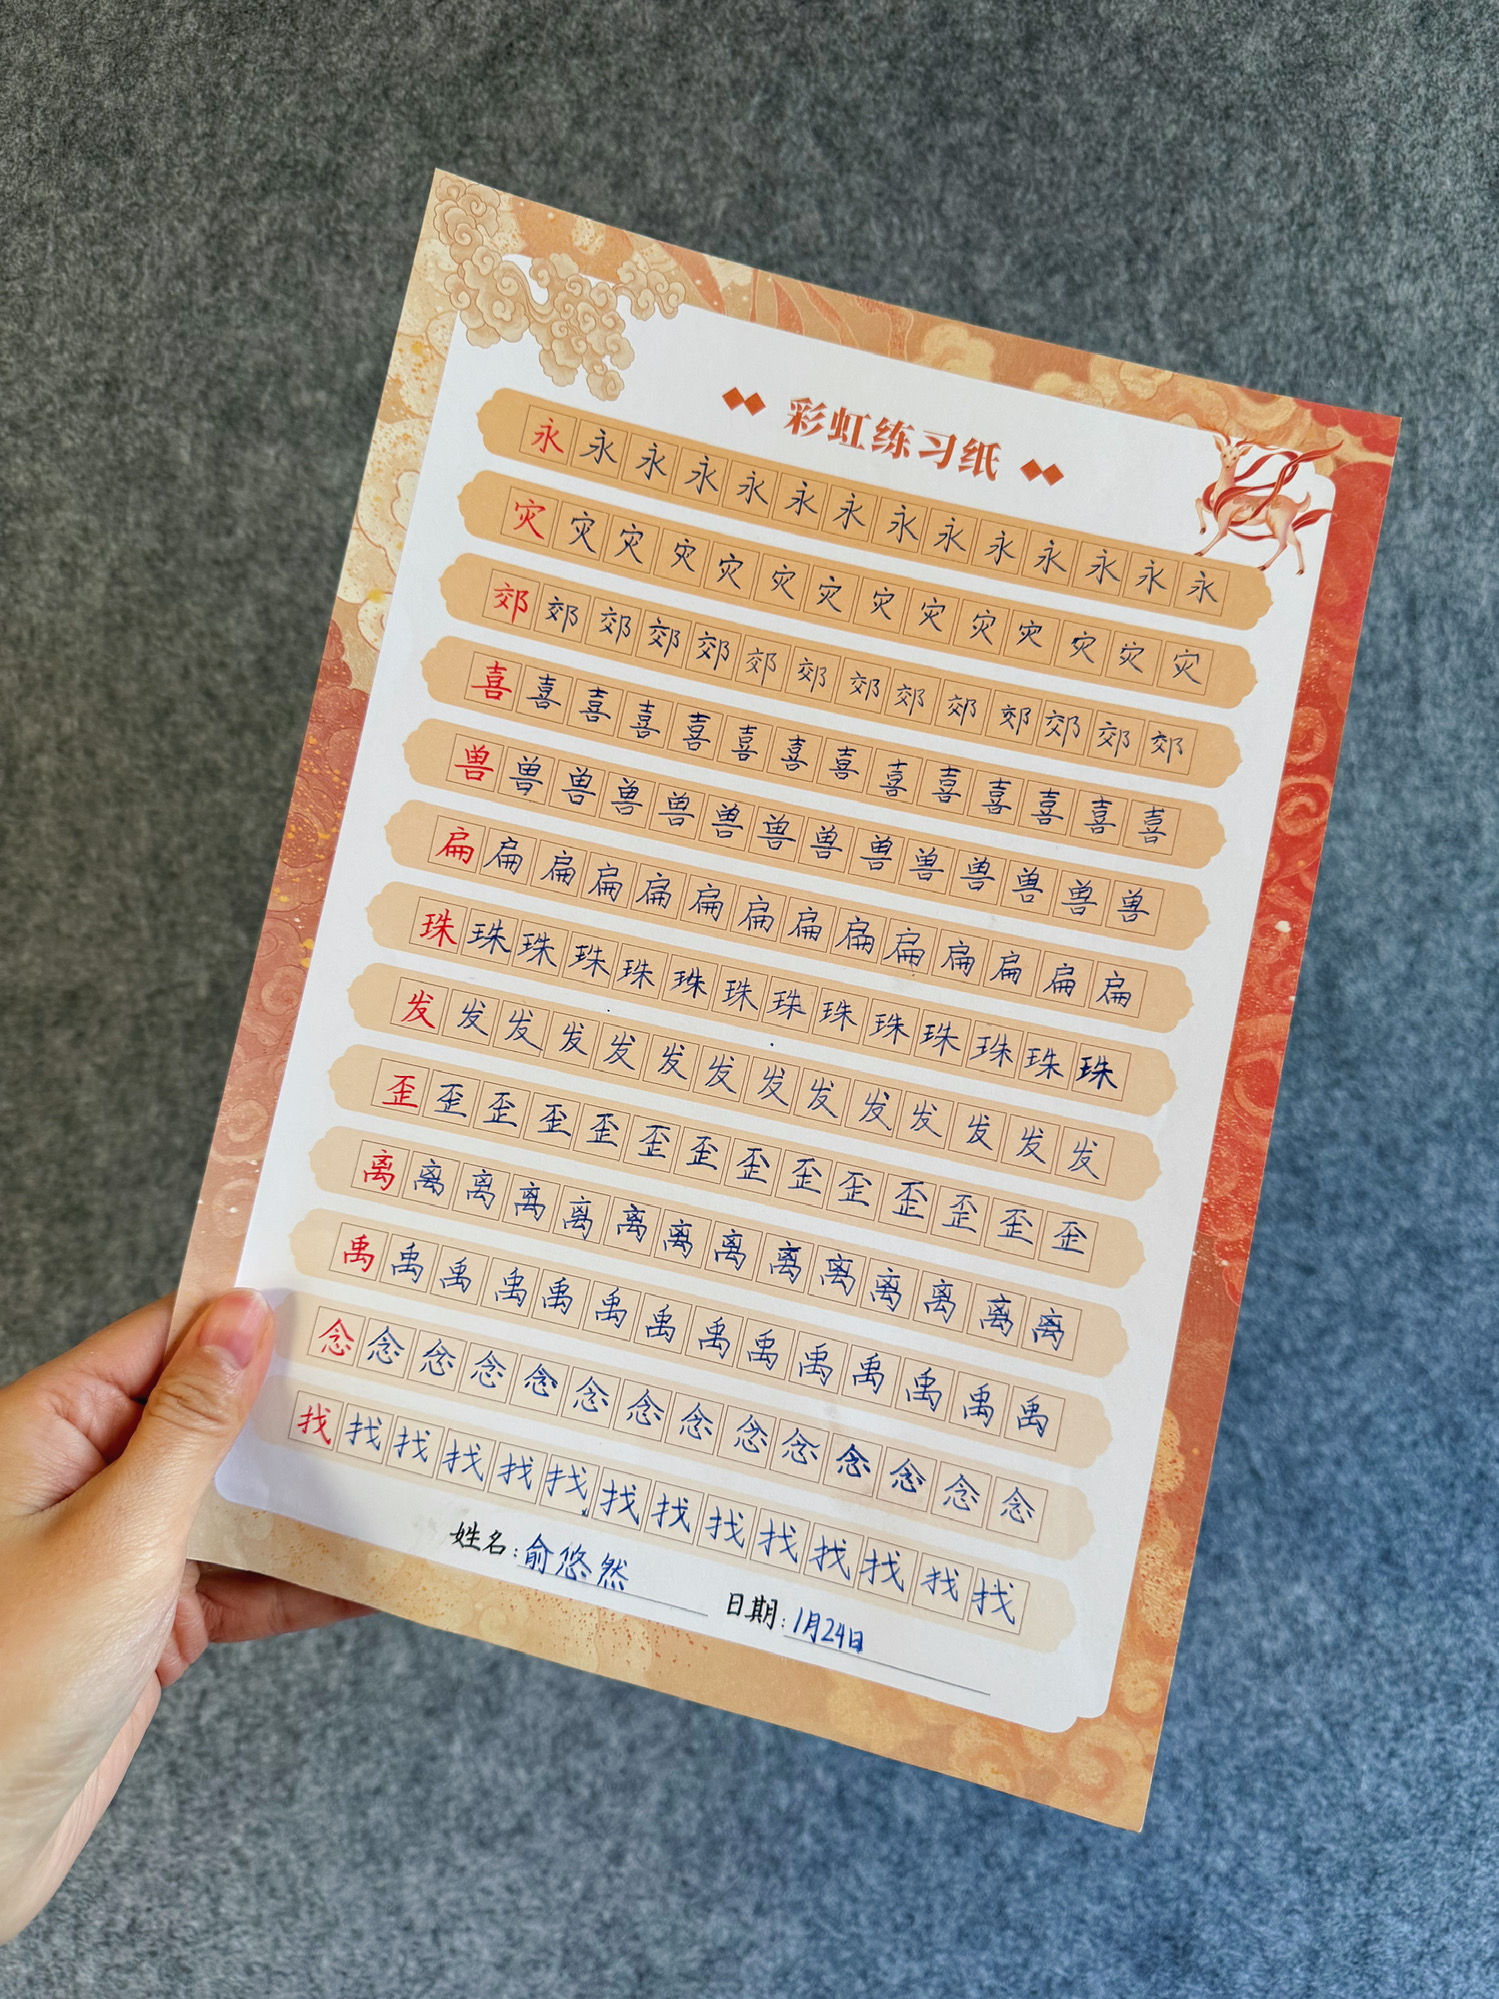 彩虹练习纸
永永永永永永永永永永永永永永
灾灾灾灾灾灾灾灾灾灾灾灾灾灾
郊郊郊郊郊郊郊郊郊郊郊郊郊郊
喜喜喜喜喜喜喜喜喜喜喜喜喜喜
兽兽兽兽兽兽兽兽兽兽兽兽兽兽
扁扁扁扁扁扁扁扁扁扁扁扁扁扁
珠珠珠珠珠珠珠珠珠珠珠珠珠珠
发发发发发发发发发发发发发发
歪歪歪歪歪歪歪歪歪歪歪歪歪歪
离离离离离离离离离离离离离离
禹禹禹禹禹禹禹禹禹禹禹禹禹禹
念念念念念念念念念念念念念念
找找找找找找找找找找找找找找
姓名:俞悠然 日期:1月24日